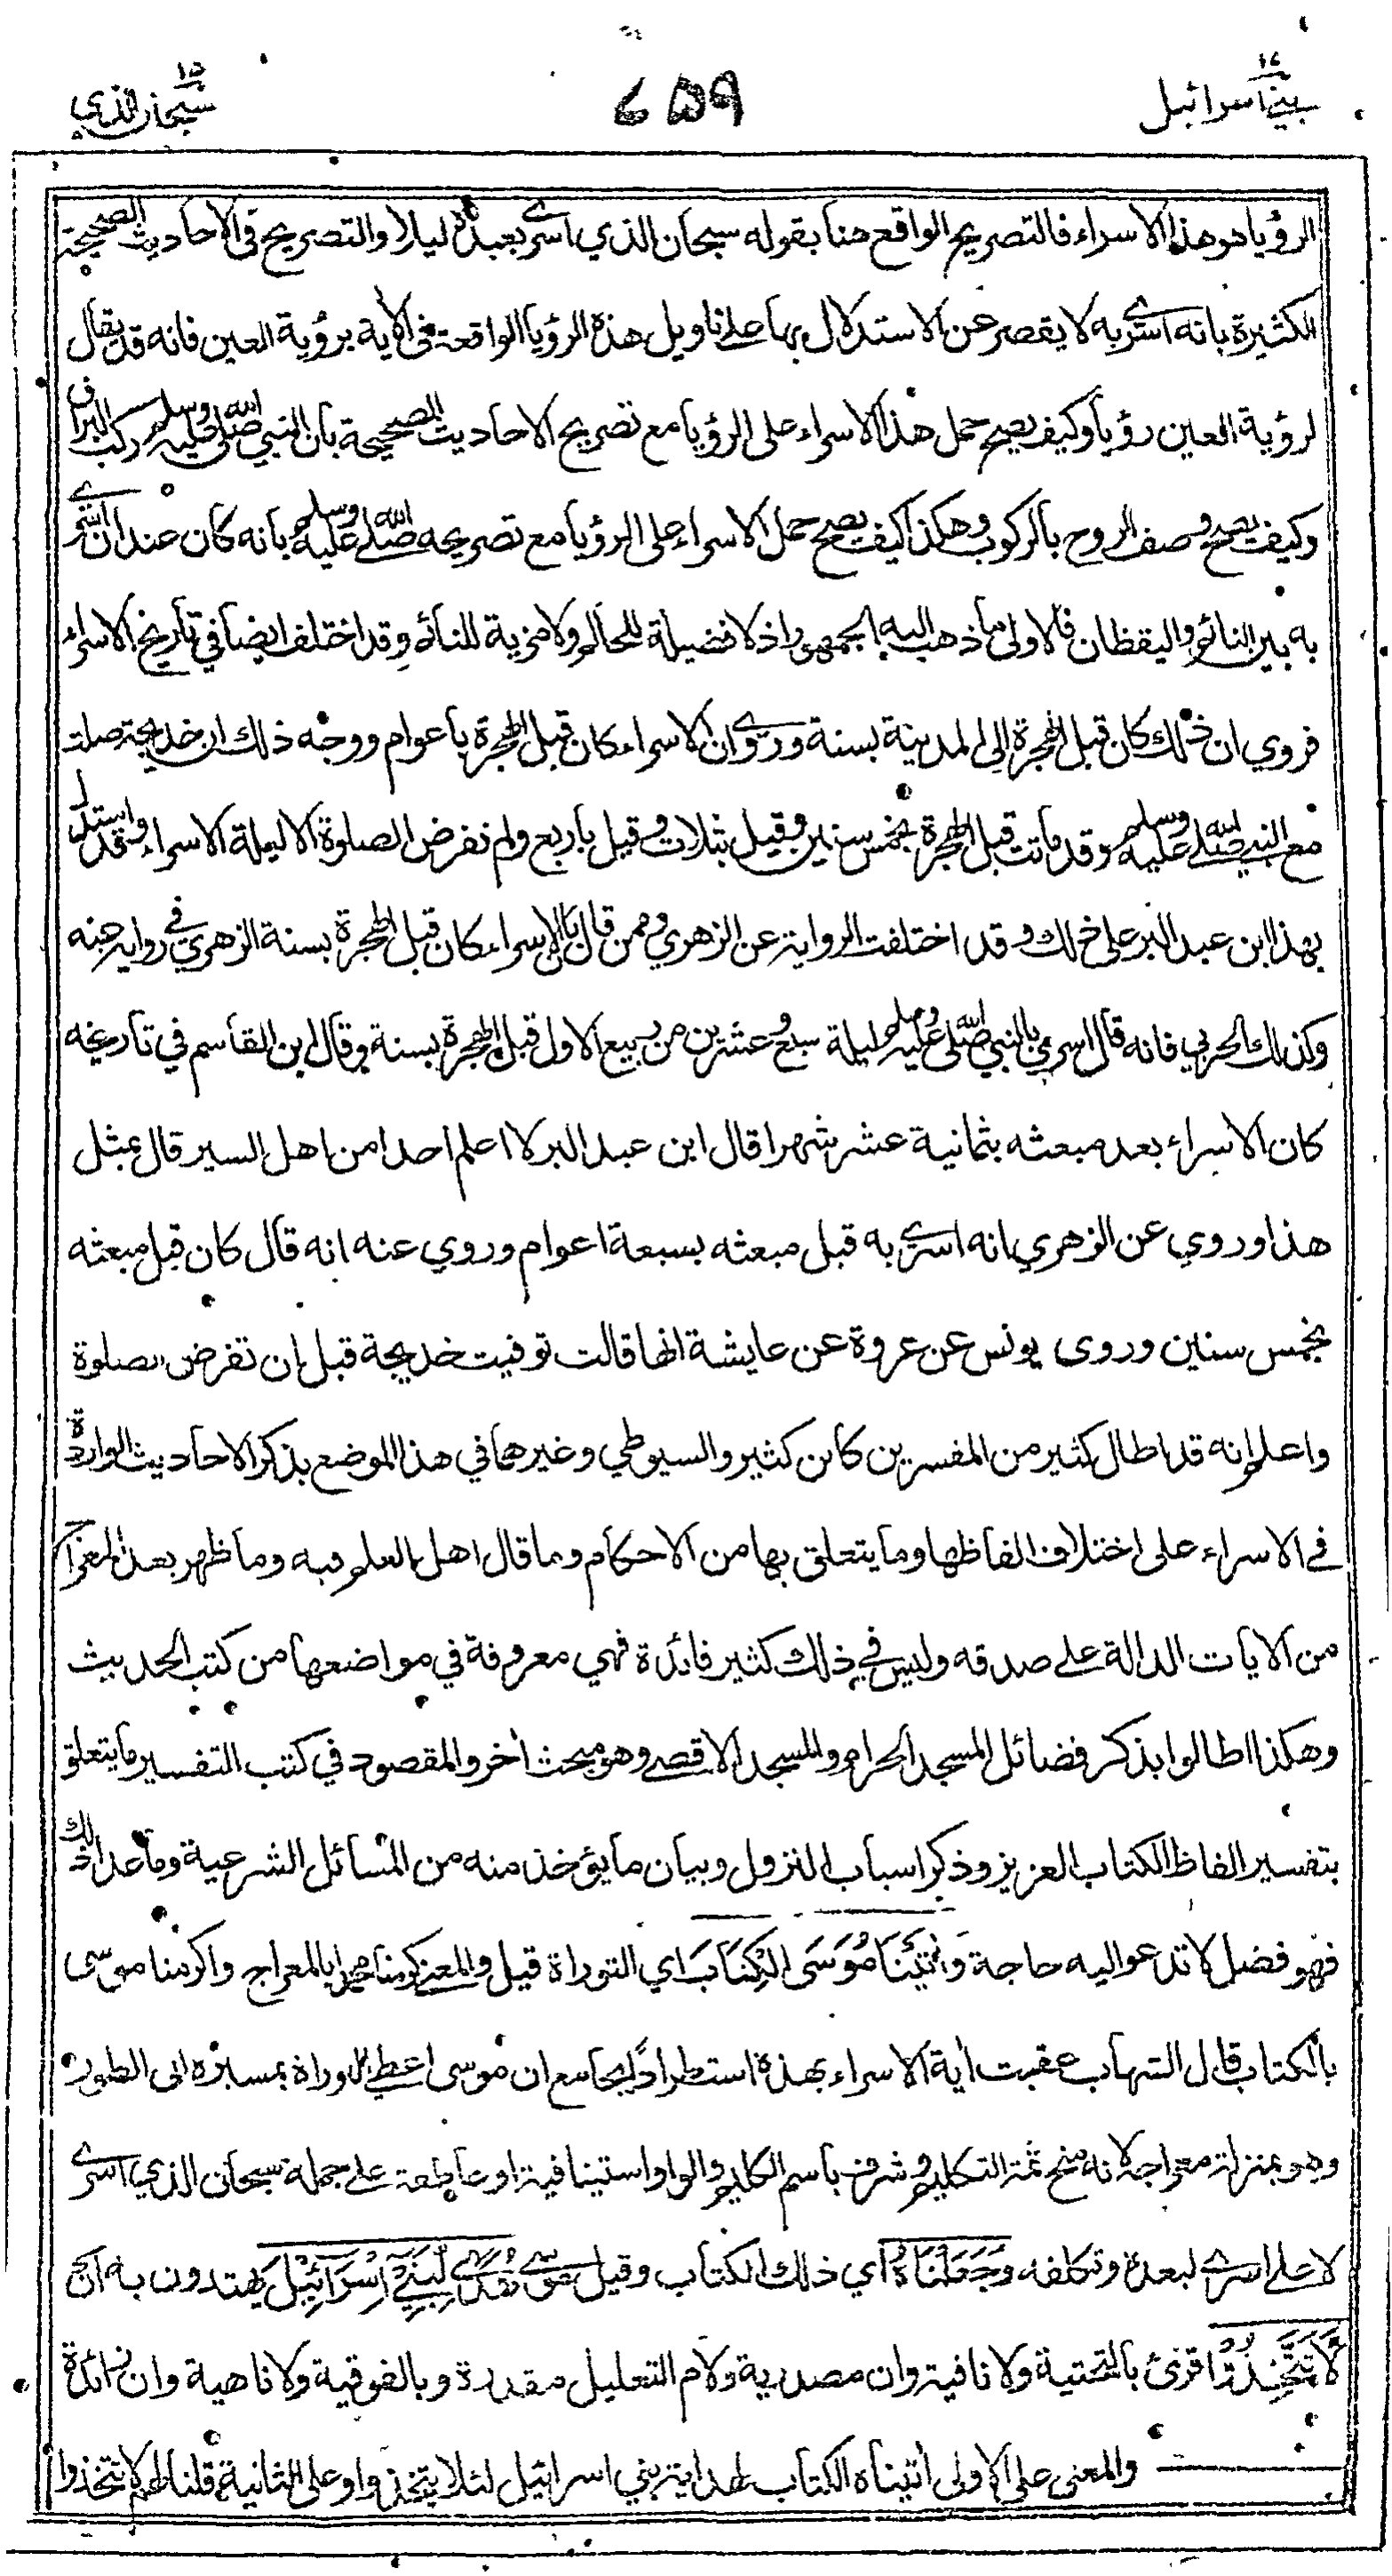 بني اسرائيل ١٧
٧٥٩
سبحان الذي ١٥
الرؤيا هو هذا الاسراء فالتصريح الواقع هنا بقوله سبحان الذي اسرى بعبده ليلا والتصريح في الاحاديث الصحيحة
الكثيرة بانه اسري به لا يقصر عن الاستدلال بها على تاويل هذه الرؤيا الواقعة في الاية برؤية العين فانه قد يقال
لرؤية العين رؤيا وكيف يصح حمل هذا الاسراء على الرؤيا مع تصريح الاحاديث الصحيحة بان النبي صلى الله عليه وسلم ركب البراق
وكيف يصح وصف الروح بالركوب وهكذا كيف يصح حمل الاسراء على الرؤيا مع تصريحه صلى الله عليه وسلم بانه كان عند ان اسري
به بين النائم واليقظان فالاولى ما ذهب اليه الجمهور اذ لا فضيلة للحالم ولا مزية للنائم وقد اختلف ايضا في تاريخ الاسراء
فروي ان ذلك كان قبل الهجرة الى المدينة بسنة وروي ان الاسراء كان قبل الهجرة باعوام ووجه ذلك ان خديجة صلت
مع النبي صلى الله عليه وسلم وقد ماتت قبل الهجرة بخمس سنين وقيل بثلاث وقيل باربع ولم تفرض الصلوة الا ليلة الاسراء وقد استدل
بهذا ابن عبد البر على ذلك وقد اختلفت الرواية عن الزهري وممن قال بان الاسراء كان قبل الهجرة بسنة الزهري في رواية عنه
وكذلك الحربي فانه قال اسري بالنبي صلى الله عليه وسلم ليلة سبع وعشرين من ربيع الاول قبل الهجرة بسنة وقال ابن القاسم في تاريخه
كان الاسراء بعد مبعثه بثمانية عشر شهرا قال ابن عبد البر لا اعلم احدا من اهل السير قال بمثل
هذا وروي عن الزهري انه اسري به قبل مبعثه بسبعة اعوام وروي عنه انه قال كان قبل مبعثه
بخمس سنين وروى يونس عن عروة عن عايشة انها قالت توفيت خديجة قبل ان تفرض الصلوة
واعلم انه قد اطال كثير من المفسرين كابن كثير والسيوطي وغيرهما في هذا الموضع بذكر الاحاديث الواردة
في الاسراء على اختلاف الفاظها وما يتعلق بها من الاحكام وما قال اهل العلم فيه وما ظهر بعد المعراج
من الايات الدالة على صدقه وليس في ذلك كثير فائدة فهي معروفة في مواضعها من كتب الحديث
وهكذا اطالوا بذكر فضائل المسجد الحرام والمسجد الاقصى وهو مبحث اخر والمقصود في كتب التفسير ما يتعلق
بتفسير الفاظ الكتاب العزيز وذكر اسباب النزول وبيان ما يؤخذ منه من المسائل الشرعية وما عدا ذلك
فهو فضل لا تدعو اليه حاجة وَاٰتَيْنَا مُوْسَى الْكِتَابَ اي التوراة قيل والمعنى كرمنا محمدا بالمعراج واكرمنا موسى
بالكتاب قال الشهاب عقبت اية الاسراء بهذه استطرادا بجامع ان موسى اعطي التوراة بمسيره الى الطور
وهو بمنزلة معراجه لانه منح ثمة التكليم وشرف باسم الكليم والواو استينافية او عاطفة على جملة سبحان الذي اسرى
لا على اسرى لبعده وتكلفه وَجَعَلْنَاهُ اي ذلك الكتاب وقيل موسى هُدًى لِّبَنِيْ اِسْرَائِيْلَ يهتدون به اَنْ
لَّا تَتَّخِذُوْا قرئ بالتحتية ولا نافية وان مصدرية ولام التعليل مقدرة وبالفوقية ولا ناهية وان زائدة
والمعنى على الاولى اتيناه الكتاب لهداية بني اسرائيل لئلا يتخذوا وعلى الثانية قلنا لهم لا تتخذوا